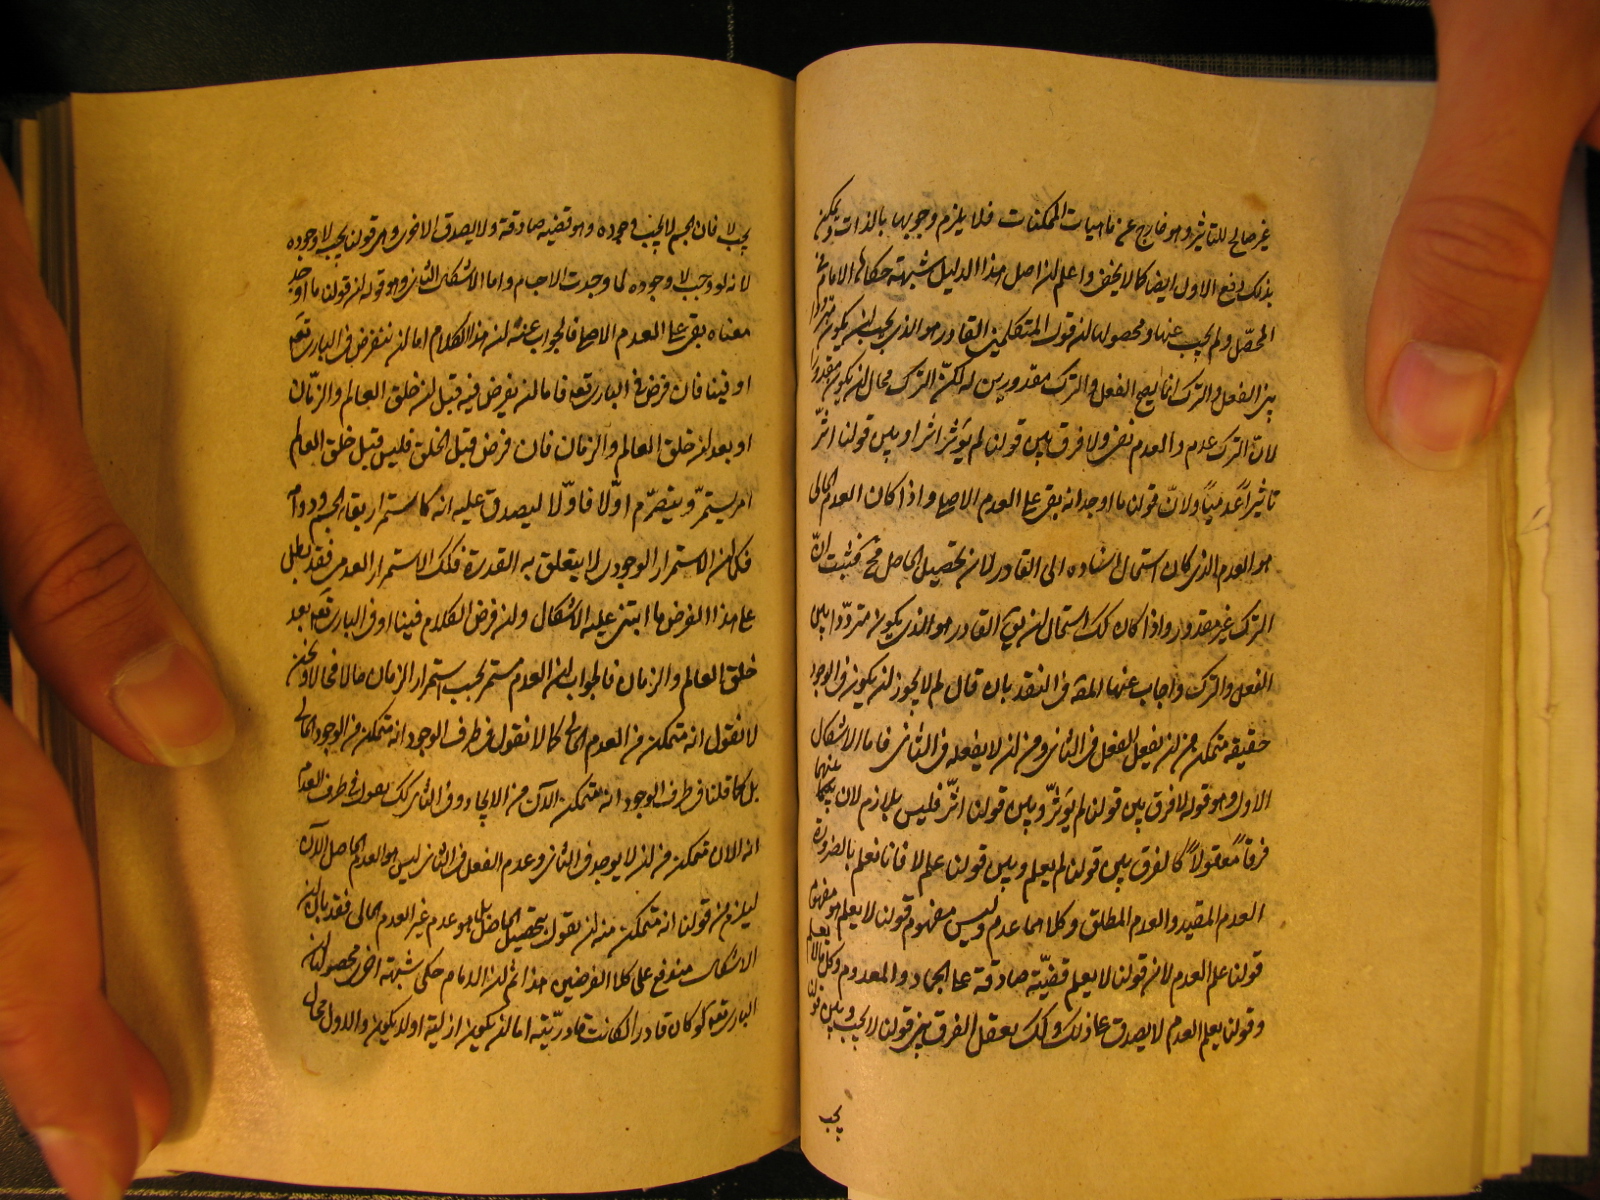 غير صالح للتاثير وهو خارج عن ماهيات الممكنات فلا يلزم وجوبها بالذات ويمكن
بذلك دفع الاول ايضا كما لا يخفى واعلم ان اصل هذا الدليل شبهة حكاها الامام في
المحصّل ولم يجب عنها ومحصولها ان قول المتكلمين القادر هو الذي يجب ان يكون مترددا
بين الفعل والترك انما يصح الفعل والترك مقدورين له لكنّ الترك محال ان يكون مقدورا
لانّ الترك عدم والعدم نفى ولا فرق بين قولنا لم يؤثر اثرا وبين قولنا اثّر
تاثيراً عدمياً ولانّ قولنا ما اوجد انه بقى على العدم الاصلى واذا كان العدم الحالى
هو العدم الذى كان استحال استناده الى القادر لان تحصيل الحاصل مح فثبت انّ
الترك غير مقدور واذا كان كك استحال ان يق القادر هو الذى يكون مترددا بين
الفعل والترك واجاب عنها المص فى النقد بان قال لم لا يجوز ان يكون فى الوجود
حقيقة متمكن من ان يفعل الفعل فى الثانى ومن ان لا يفعله فى الثانى فاما الاشكال
الاول وهو قوله لا فرق بين قولنا لم يؤثّر وبين قولنا اثّر فليس بلازم لان بينهما
فرقاً معقولاً كالفرق بين قولنا لم يعلم وبين قولنا علم لا فانا نعلم بالضرورة
العدم المقيد والعدم المطلق وكلاهما عدم وليس مفهوم قولنا لا يعلم هو مفهوم
قولنا علم العدم لان قولنا لا يعلم قضيّة صادقة على الجماد والمعدوم وكل ما لا يعلم
وقولنا يعلم العدم لا يصدق على ذلك وكك يعقل الفرق بين قولنا لا يجب وبين قولنا
يجب
يجب لا فان الجسم لا يجب وجوده وهو قضية صادقة ولا يصدق الاخرى وهى قولنا يجب لا وجوده
لانه لو وجب لا وجوده لما وجدت الاجسام واما الاشكال الثانى وهو قوله ان قولنا ما اوجد
معناه بقى على العدم الاصلى فالجواب عنه ان هذا الكلام اما ان نفرض فى البارى تعه
او فينا فان فرض فى البارى تعه فاما ان يفرض فيه قبل ان خلق العالم والزّمان
او بعد ان خلق العالم والزمان فان فرض قبل الخلق فليس قبل خلق العالم
امر يستمرّ ويتصرّم اوّلا فاوّلا ليصدق عليه انه كاستمرار بقاء الجسم ودوامه
فكما ان الاستمرار الوجودى لا يتعلق به القدرة فكك الاستمرار العدمى فقد بطل
على هذا الفرض ما ابتنى عليه الاشكال وان فرض الكلام فينا او فى البارى تعه بعد
خلق العالم والزمان فالجواب ان العدم مستمر بحسب استمرار الزمان حالا فحالا ونحن
لا نقول انه متمكن من العدم الحالى كما لا نقول فى طرف الوجود انه متمكن من الوجود الحالى
بل كما قلنا فى طرف الوجود انه متمكن الآن من الايجاد فى الثانى كك نقول فى طرف العدم
انه الان متمكن من ان لا يوجد فى الثانى وعدم الفعل فى الثانى ليس هو العدم الحاصل الآن
ليلزم من قولنا انه متمكن منه ان نقول بتحصيل الحاصل بل هو عدم غير العدم الحالى فقد بان ان
الاشكال مندفع على كلا الفرضين هذا ثم ان الامام حكى شبهة اخرى محصولها ان
البارى تعه لو كان قادرا لكانت قادريّته اما ان يكون ازلية او لا يكون والاول محال